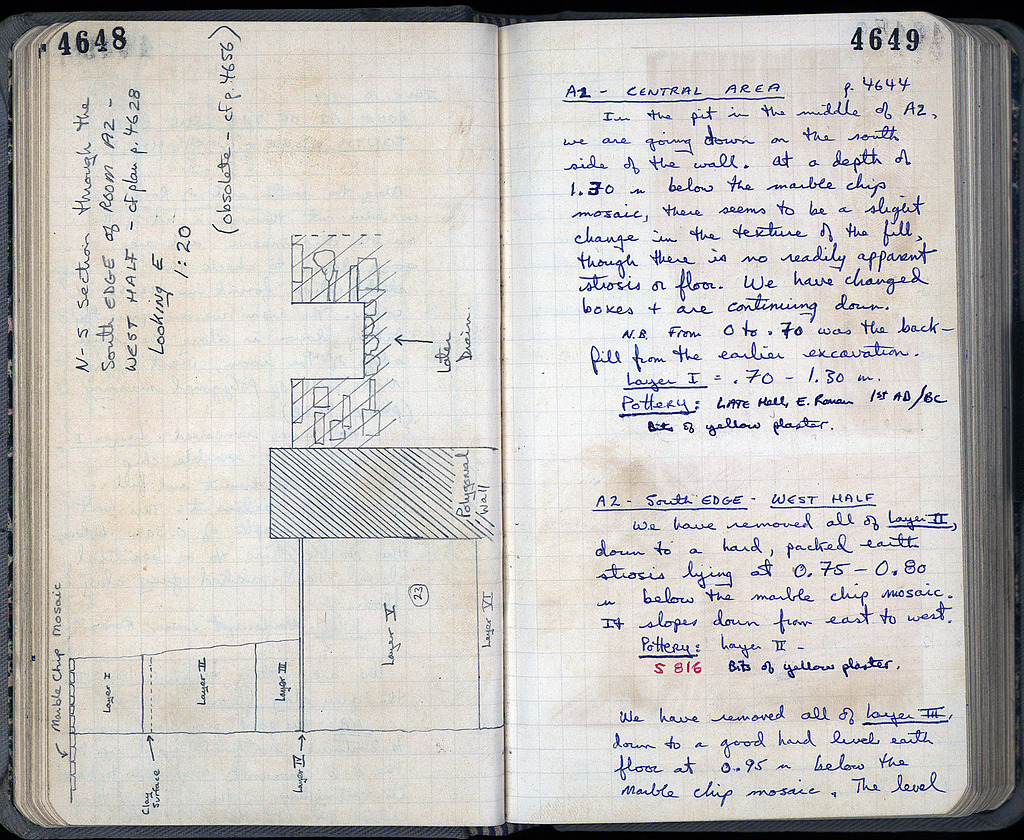 4648
N-S Section through the
South EDGE of ROOM A2 -
WEST HALF - cf plan p. 4628
Looking E
1:20
(obsolete - cf p. 4656)
Later
Drain
Polygonal
Wall
Marble Chip Mosaic
Layer I
Clay
Surface
Layer II
Layer III
Layer IV
Layer V
23
Layer VI
4649
A2 - CENTRAL AREA p. 4644
In the pit in the middle of A2,
we are going down on the south
side of the wall. At a depth of
1.30 m below the marble chip
mosaic, there seems to be a slight
change in the texture of the fill,
though there is no readily apparent
strosis or floor. We have changed
boxes + are continuing down.
N.B. From 0 to .70 was the back-
fill from the earlier excavation.
Layer I = .70 - 1.30 m.
Pottery: LATE Hell, E. Roman 1st AD/BC
Bits of yellow plaster.
A2 - South EDGE - WEST HALF
We have removed all of Layer II,
down to a hard, packed earth
strosis lying at 0.75 - 0.80
m below the marble chip mosaic.
It slopes down from east to west.
Pottery: Layer II -
S 816 Bits of yellow plaster.
We have removed all of Layer III,
down to a good hard level earth
floor at 0.95 m below the
Marble chip mosaic. The level